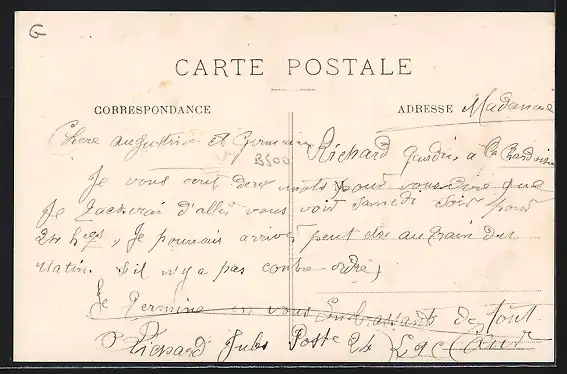 G
CARTE POSTALE
CORRESPONDANCE
ADRESSE Madame
Chere augustine et Germaine Richard
B500
Je vous ecrit deux mots pour vous dire que
Je tacherai d'aller vous voir Samedi Soir pour
24 hres, Je pourrais arriver peut etre au train du
Matin. s'il n'y a pas contre ordre,
Je Termine en vous Embrassant de tout
Richard Jules Poste 24 Cœur